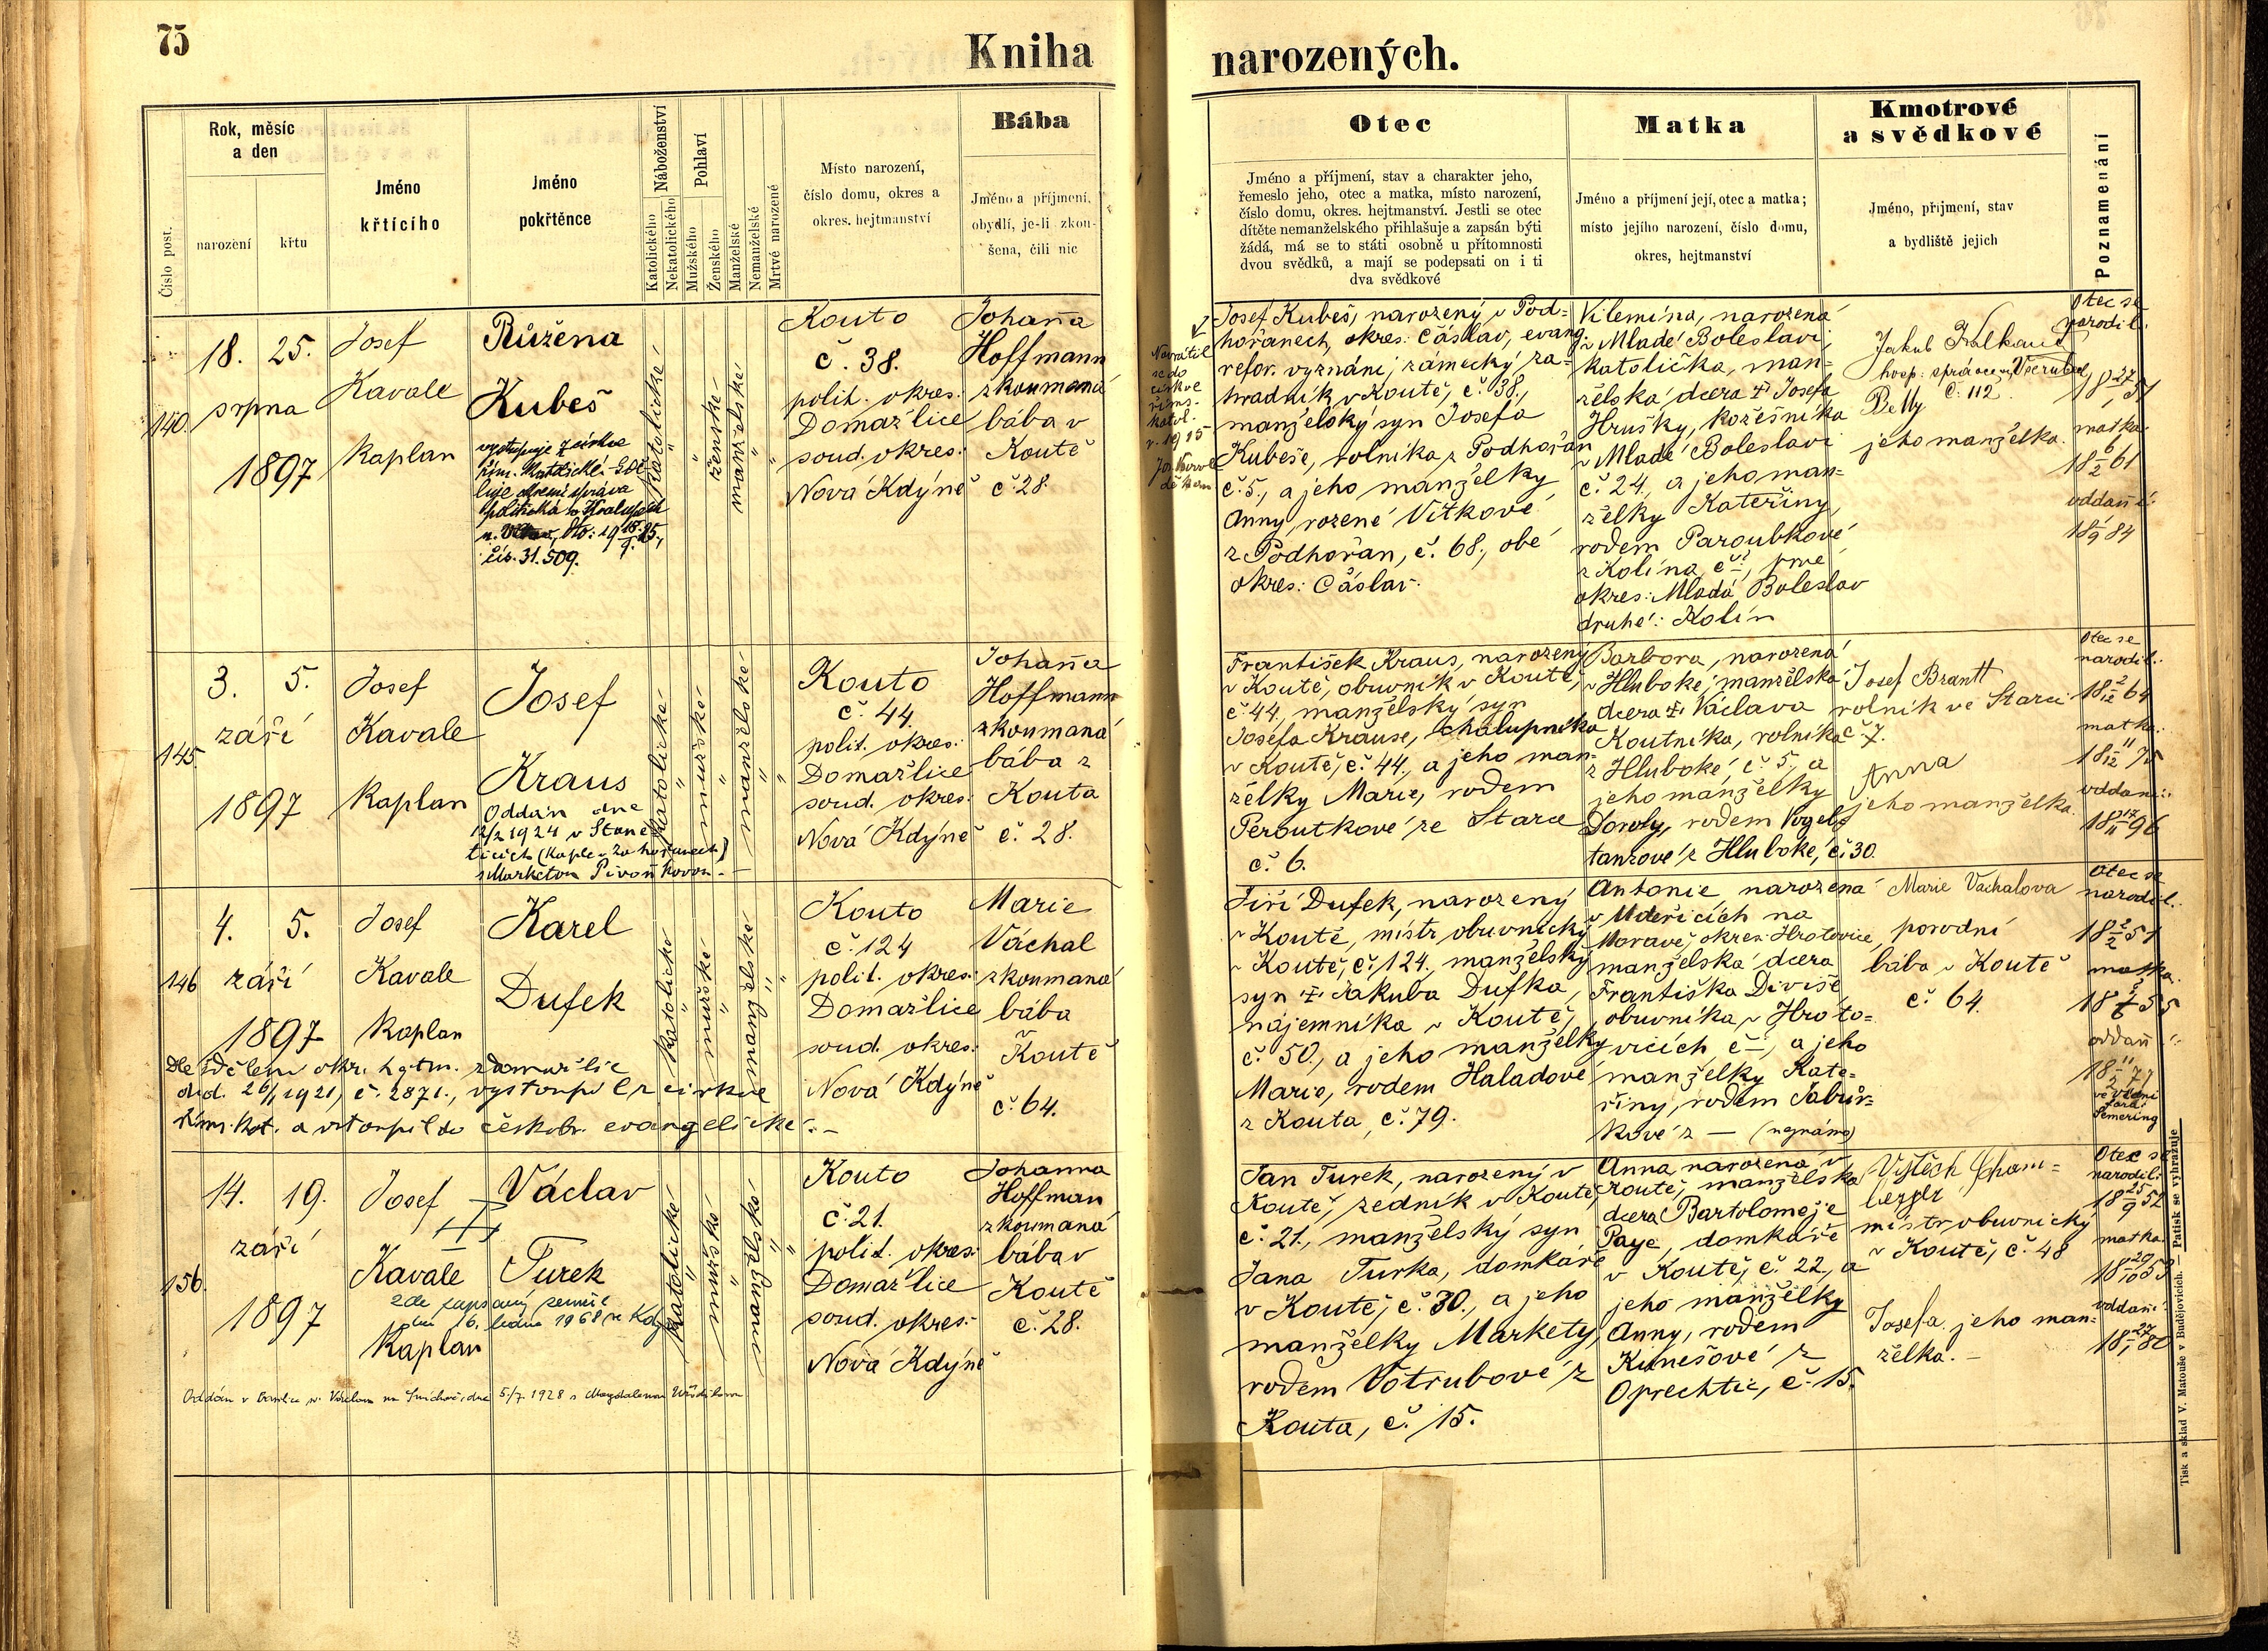 75
Kniha
narozených.
Číslo post.
Rok, měsíc
a den
narození
křtu
Jméno
křtícího
Jméno
pokřtěnce
Náboženství
Katolického
Nekatolického
Pohlaví
Mužského
Ženského
Manželské
Nemanželské
Mrtvě narozené
Místo narození,
číslo domu, okres a
okres. hejtmanství
Bába
Jméno a příjmení,
obydlí, je-li zkou-
šena, čili nic
Otec
Jméno a příjmení, stav a charakter jeho,
řemeslo jeho, otec a matka, místo narození,
číslo domu, okres. hejtmanství. Jestli se otec
dítěte nemanželského přihlašuje a zapsán býti
žádá, má se to státi osobně u přítomnosti
dvou svědků, a mají se podepsati on i ti
dva svědkové
Matka
Jméno a příjmení její, otec a matka;
místo jejího narození, číslo domu,
okres, hejtmanství
Kmotrové
a svědkové
Jméno, příjmení, stav
a bydliště jejich
Poznamenání
140.
18. 25.
srpna
1897
Josef
Kavale
Kaplan
Růžena
Kubeš
vystupuje z církve
řím. katolické. Sdě-
luje okresní správa
politická v Kralupech
čís. 31.509.
katolické
ženské
manželské
Kouto
č. 38.
polit. okres:
Domažlice
soud. okres:
Nová Kdýně
Johanna
Hoffmann
zkoumaná
bába v
Koutě
č. 28.
Navrátil
se do
církve
říms.
katol.
r. 1915
děkan
Josef Kubeš, narozený v Pod-
hořanech, okres: Čáslav, evang.
refor. vyznání, zámecký za-
hradník v Koutě, č. 38.,
manželský syn Josefa
Kubeše, rolníka z Podhořan
č. 5., a jeho manželky
Anny, rozené Vítkové
z Podhořan, č. 68., obé
okres: Čáslav.
Vilemína, narozená
v Mladé Boleslavi,
katolička, man-
želská dcera † Josefa
Hrušky, kožešníka
v Mladé Boleslavi
č. 24., a jeho man-
želky Kateřiny,
rodem Paroubkové
z Kolína č. –, prvé
okres: Mladá Boleslav
druhé: Kolín
Jakub
hosp. správce
č. 112.
Betty
jeho manželka.
Otec se
narodil:
18 27/1 51
matka:
18 6/2 61
oddaní:
18 1/9 84
145.
3. 5.
září
1897
Josef
Kavale
Kaplan
Josef
Kraus
Oddán dne
12/2 1924 v Staně-
ticích (kaple v Zahořanech)
s Markétou Pivoňkovou.–
katolické
mužské
manželské
Kouto
č. 44.
polit. okres:
Domažlice
soud. okres:
Nová Kdýně
Johanna
Hoffmann
zkoumaná
bába z
Kouta
č. 28.
František Kraus, narozený
v Koutě, obuvník v Koutě,
č. 44., manželský syn
Josefa Krause, chalupníka
v Koutě, č. 44., a jeho man-
želky Marie, rodem
Peroutkové ze Starce
č. 6.
Barbora, narozená
v Hluboké, manželská
dcera † Václava
Koutníka, rolníka
z Hluboké, č. 5., a
jeho manželky
Doroty, rodem Vogel-
tanzové z Hluboké, č. 30.
Josef Brantl
rolník ve Starci
č. 7.
Anna
jeho manželka.
Otec se
narodil:
18 2/12 64
matka:
18 11/12 75
oddaní:
18 17/11 96
146
4. 5.
září
1897
Josef
Kavale
Kaplan
Karel
Dufek
Dle sdělení okr. hejtm. z Domažlic
dtd. 26/1 1921, č. 2871., vystoupil z církve
řím. kat. a vstoupil do českobr. evangelické.–
katolické
mužské
manželské
Kouto
č. 124
polit. okres:
Domažlice
soud. okres:
Nová Kdýně
Marie
Váchal
zkoumaná
bába
v
Koutě
č. 64.
Jiří Dufek, narozený
v Koutě, mistr obuvnický
v Koutě, č. 124., manželský
syn † Jakuba Dufka,
nájemníka v Koutě,
č. 50., a jeho manželky
Marie, rodem Haladové
z Kouta, č. 79.
Antonie narozená
v Udeřicích na
Moravě, okres: Hrotovice,
manželská dcera
Františka Diviše
obuvníka v Hroto-
vicích, č. –, a jeho
manželky Kate-
řiny, rodem
kové z — (neznámo)
Marie Váchalova
porodní
bába v Koutě
č. 64.
Otec se
narodil:
18 2/2 51
matka
oddaní:
18 11/2 77
ve Vídni
fara
Semering
156.
14. 19.
září
1897
Josef
Kavale
Kaplan
Václav
Turek
zde zapsaný zemřel
dne 16. ledna 1968 ve
Oddán v basilice sv. Václava na Smíchově, dne 5/7. 1928 s Magdalenou
katolické
mužské
manželské
Kouto
č. 21.
polit. okres:
Domažlice
soud. okres:
Nová Kdýně
Johanna
Hoffman
zkoumaná
bába v
Koutě
č. 28.
Jan Turek, narozený v
Koutě, zedník v Koutě,
č. 21., manželský syn
Jana Turka, domkáře
v Koutě, č. 30., a jeho
manželky Markety,
rodem Votrubové z
Kouta, č. 15.
Anna narozená v
Koutě, manželská
dcera Bartoloměje
Paye, domkáře
v Koutě, č. 22., a
jeho manželky
Anny, rodem
z
Oprechtic, č. 15.
Vojtěch
mistr obuvnický
v Koutě, č. 48
Josefa jeho man-
želka.–
Otec se
narodil:
18 25/9 52
matka:
18 20/10 53
oddaní:
18 27/1 80
Tisk a sklad V. Matouše v Budějovicích. — Patisk se vyhražuje